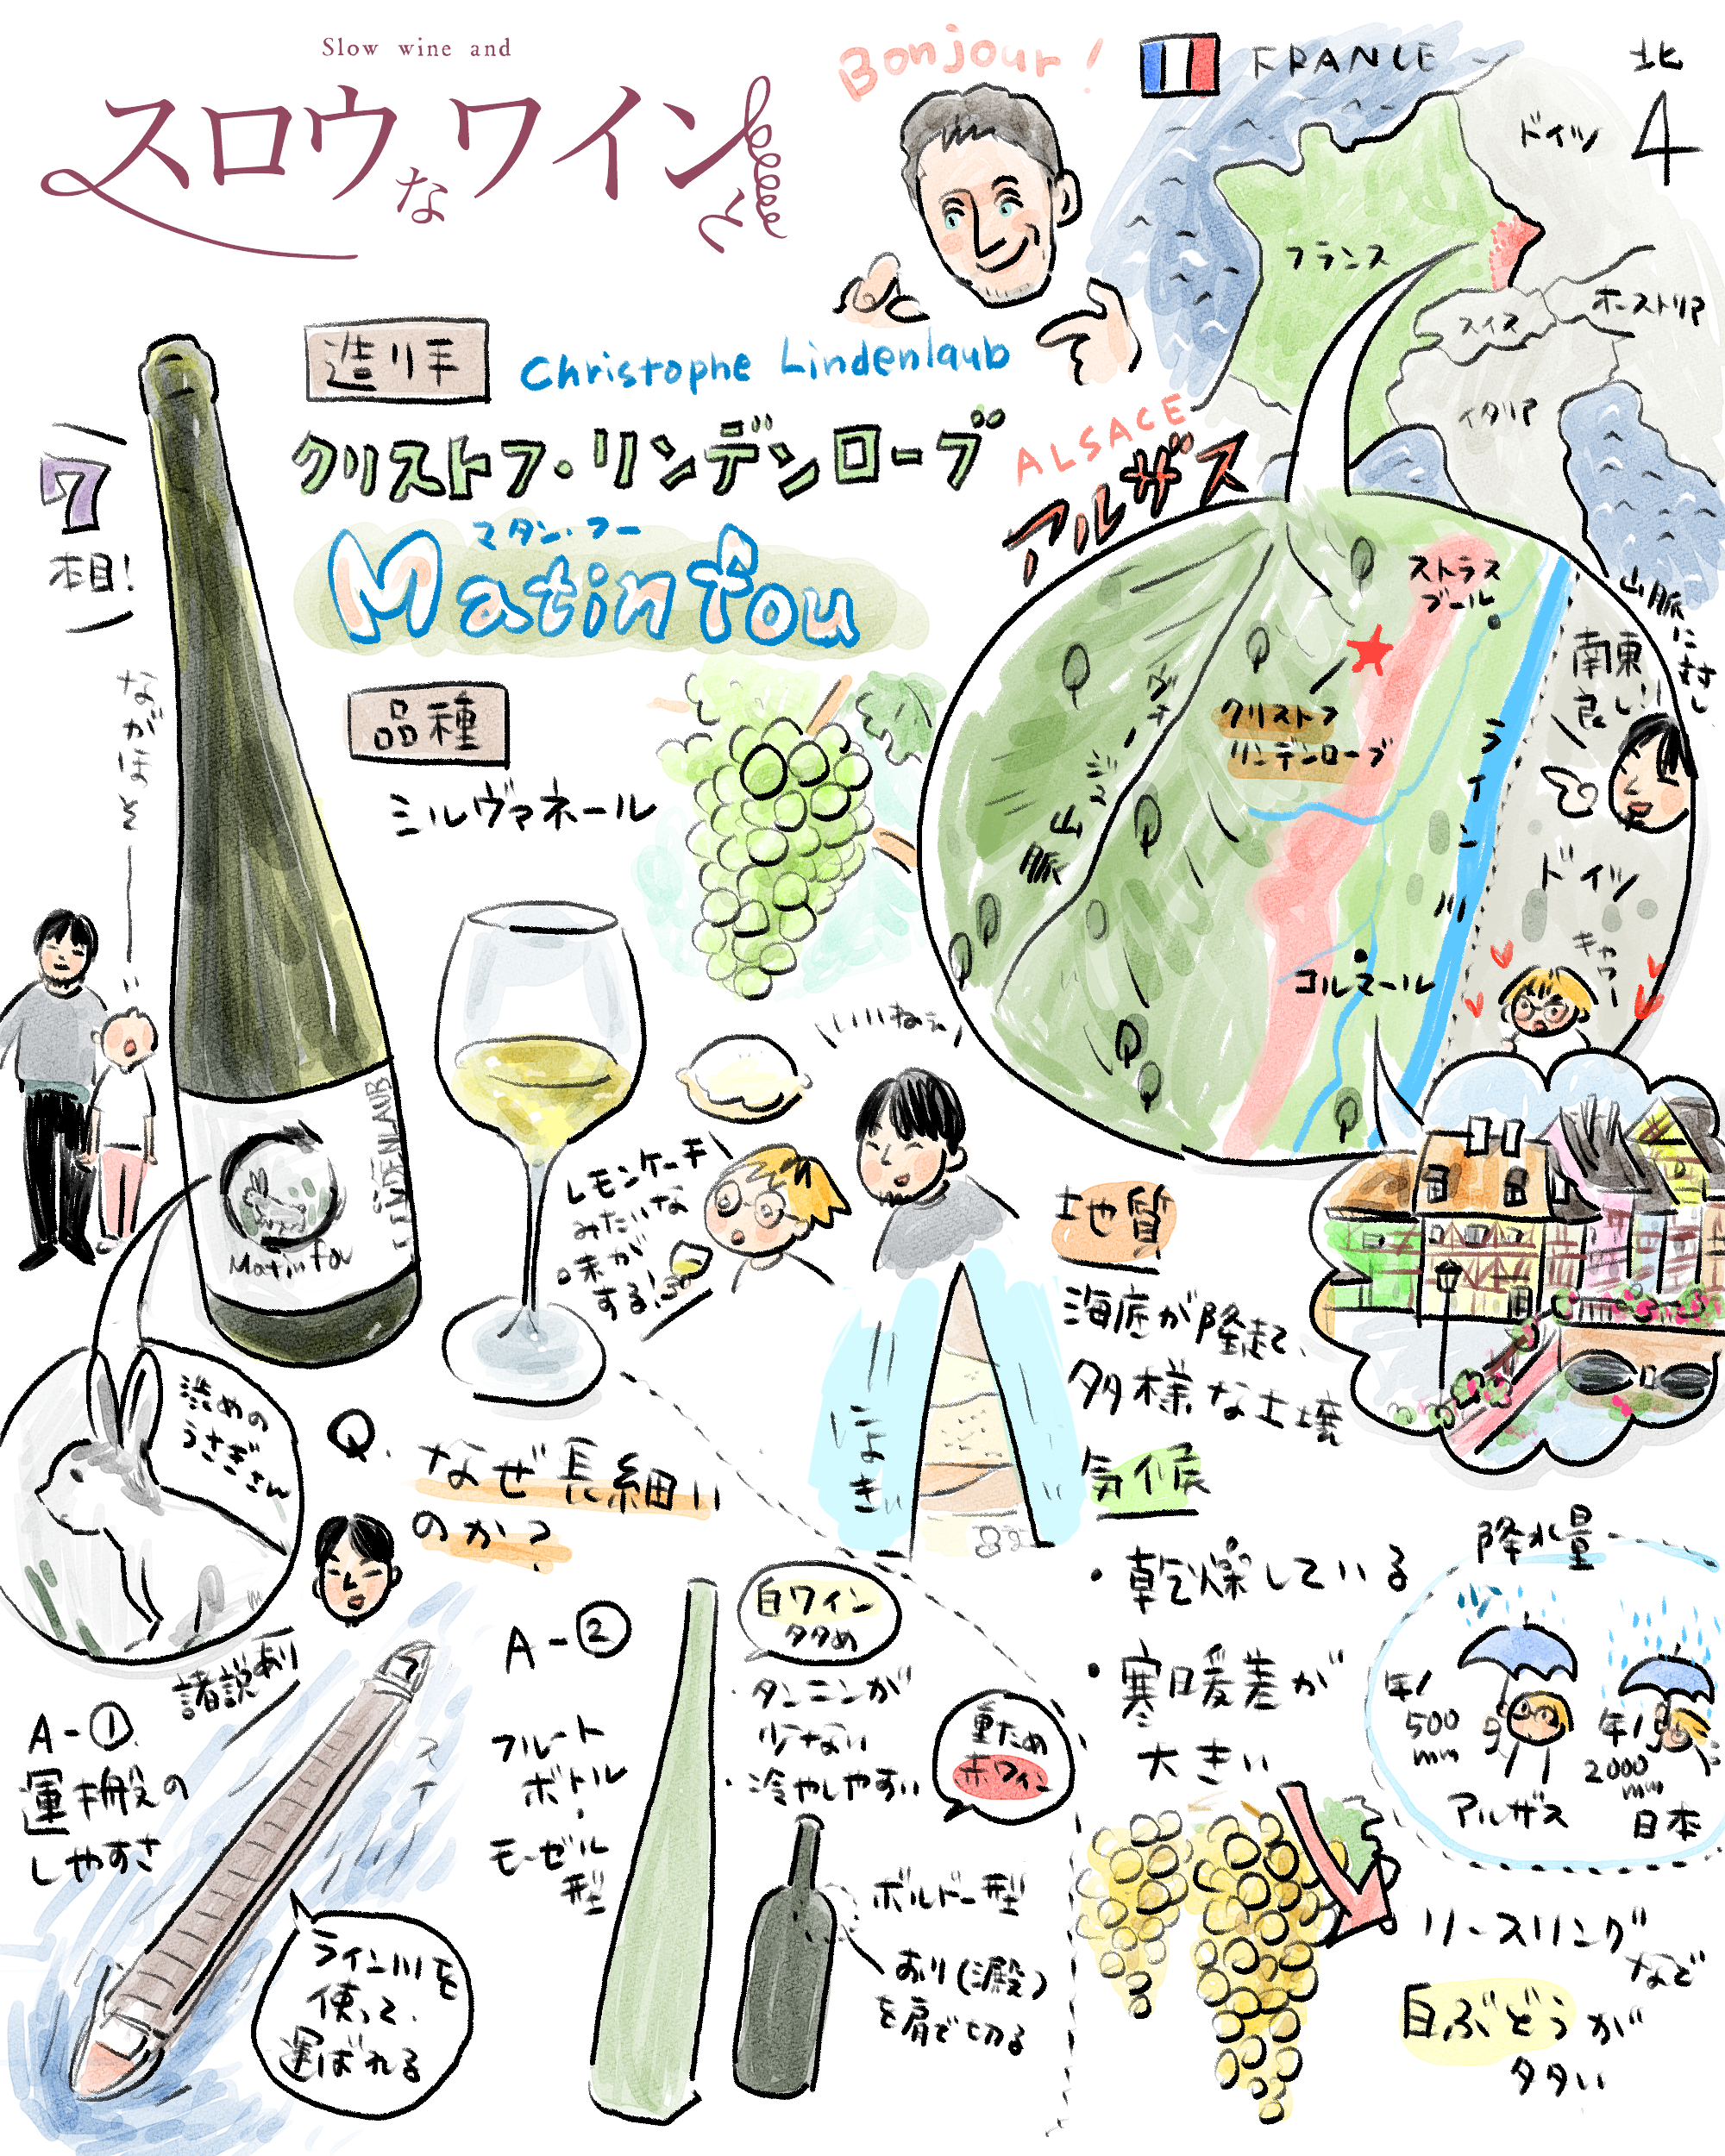 Slow wine and
スロウなワインと
Bonjour!
FRANCE
北
4
ドイツ
フランス
スイス
オーストリア
イタリア
造り手
Christophe Lindenlaub
クリストフ・リンデンローブ
ALSACE
アルザス
マタン・フー
Matin fou
7
本目!
ながほそーーー
品種
ミルヴァネール
ストラス
ブール
クリストフ
リンデンローブ
ヴォージュ山脈
ライン川
コルマール
ドイツ
山脈に対し
南東
良い
キャワー
LINDENLAUB
Matin fou
いいねぇ
レモンケーキ
みたいな
味が
する!
渋めの
うさぎさん
地質
海底が隆起し、
多様な土壌
にょき
気候
・乾燥している
・寒暖差が
大きい
降水量
少
年/
500
mm
アルザス
年/
2000
mm
日本
リースリング
など
白ぶどうが
多い
Q.なぜ長細い
のか?
諸説あり
A-①
運搬の
しやすさ
スイー
ライン川を
使って、
運ばれる
A-②
フルート
ボトル・
モーゼル
型
白ワイン
多め
・タンニンが
少ない
・冷やしやすい
重ため
赤ワイン
ボルドー型
おり(澱)
を肩で切る